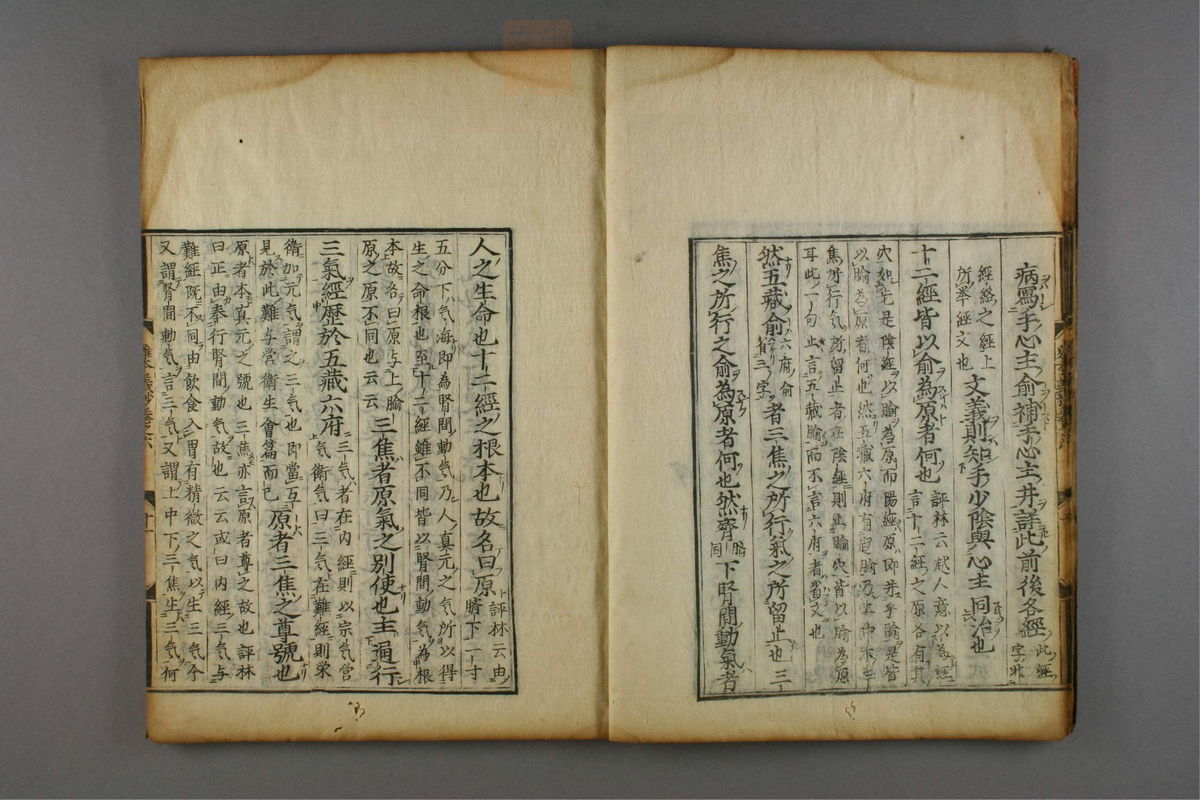 病寫手心主俞補手心主井詳此前後各經此經字非
經絡之經上所举經文也文義則知手少陰與心主同治也
十二經皆以俞為原者何也評林云越人意以為經言十二經之原各有其
穴如是陰經以腧為原而陽經原即
以腧為原者何也然五藏六府有
焦所行気所留止者在陰經則止腧穴皆以腧為原
耳此一句止言五藏腧而不言六府者省文也
然五藏俞六府俞者三字者三焦之所行氣之所留止也三
焦之所行之俞為原者何也然齊臍同下腎間動氣者
人之生命也十二經之根本也故名曰原評林云由臍下一寸
五分下気海即為腎間動気乃人真元之気所以得
生之命根也至十二經雖不同皆以腎間動気為根
本故名曰原与上腧原之原不同也云云三焦者原氣之別使也主通行
三氣經歷於五藏六府三気者在内經則以宗気営気衛気曰三気在難經則栄
衛加元気謂之三気也即當互
見於此難与営衛生會篇而已原者三焦之尊號也
原者本真元之號也三焦亦言原者尊之故也評林
曰正由奉行腎間動気故也云云或曰内經三気与
難經既不同由飲食入胃有精微之気以生三気今
又謂腎間動気言三気又謂上中下三焦生三気何